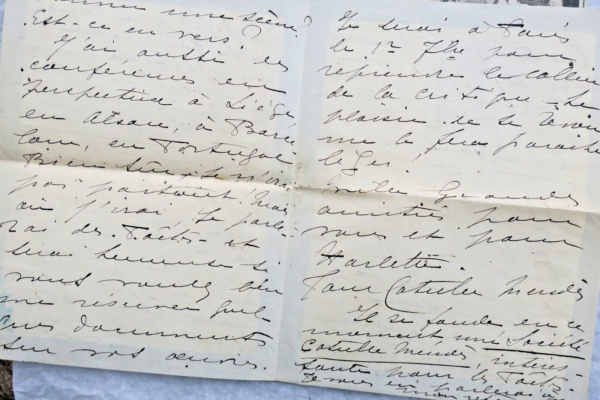 donner une scène?
Est-ce en vers?
J'ai aussi des
conférences en
perspective à Liège
en Alsace, à Barce
lone, en Portugal
Bien sûr je n'irai
pas partout. Mais
où j'irai je parle
rai des Poètes et
serai heureuse si
vous voulez bien
me réserver quel
ques documents
sur vos œuvres.
Je serai à Paris
le 1er 7bre pour
reprendre le collier
de la critique. Le
plaisir de se revoir
me le fera paraître
léger!
Grandes
amitiés pour
vous et pour
Jane Catulle Mendès
Il se fonde en ce
moment une Société
Catulle Mendès, intéres-
sante pour les Poètes